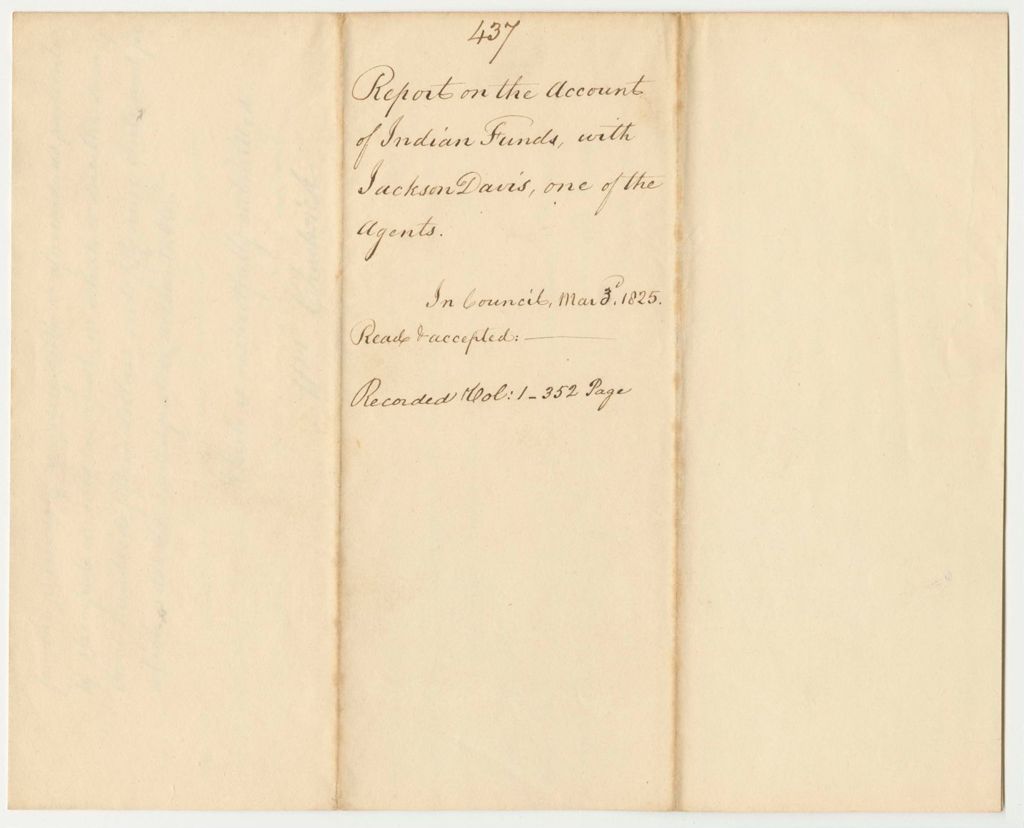 437
Report on the Account
of Indian Funds, with
Jackson Davis, one of the
Agents.
In Council, Mar 3d, 1825.
Read & accepted:
Recorded Vol: 1 - 352 Page